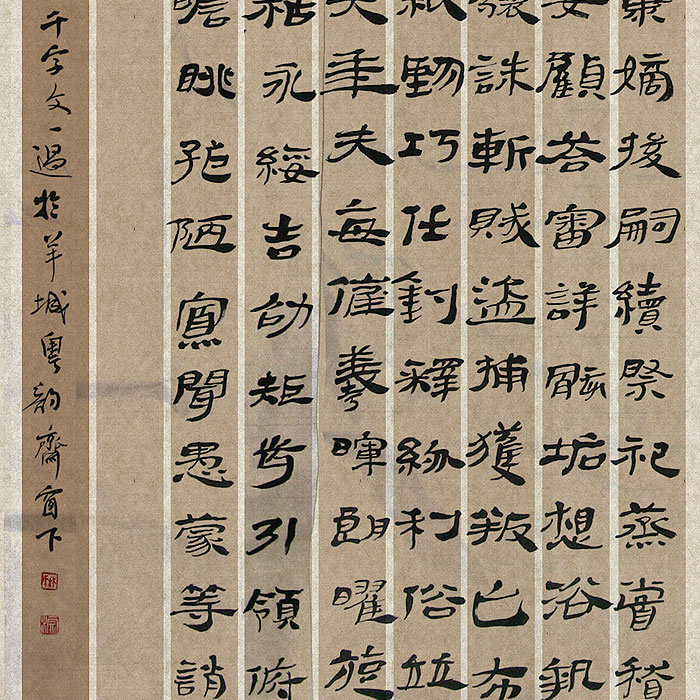 嫡後嗣續祭祀蒸嘗稽
要顧答審詳骸垢想浴執
驤誅斬賊盜捕獲叛亡布
紙鈞巧任釣釋紛利俗並
笑年矢每催羲暉朗曜旋
祜永綏吉劭矩步引領俯
瞻眺孤陋寡聞愚蒙等誚
千字文一過於羊城粵韵齋窗下